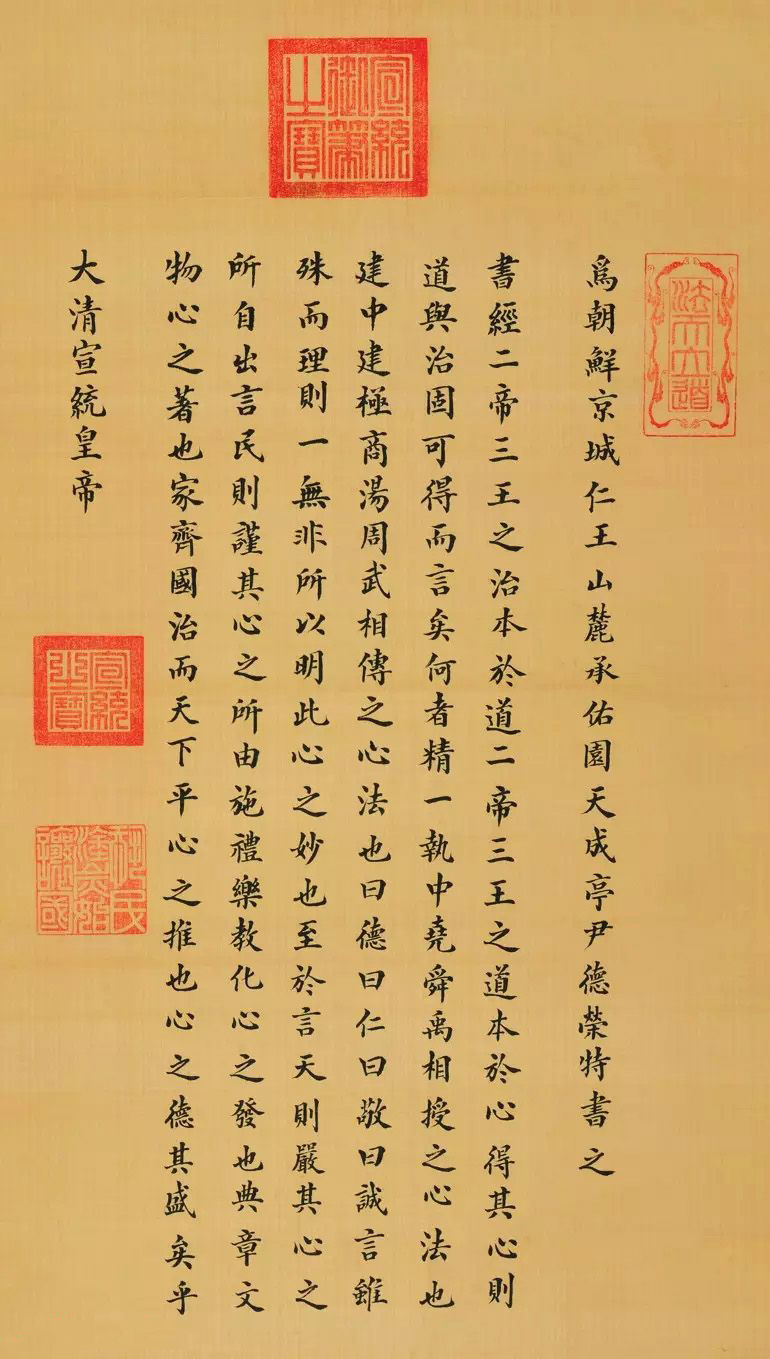 宣統御筆之寶
爲朝鮮京城仁王山麓承佑園天成亭尹德榮特書之
書經二帝三王之治本於道二帝三王之道本於心得其心則
道與治固可得而言矣何者精一執中堯舜禹相授之心法也
建中建極商湯周武相傳之心法也曰德曰仁曰敬曰誠言雖
殊而理則一無非所以明此心之妙也至於言天則嚴其心之
所自出言民則謹其心之所由施禮樂教化心之發也典章文
物心之著也家齊國治而天下平心之推也心之德其盛矣乎
大清宣統皇帝